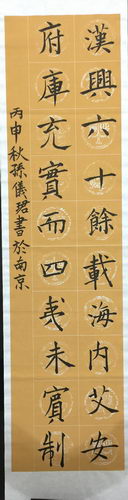 漢興六十餘載海内艾安
府庫充實而四夷未賓制
丙申秋孫儀珺書於南京